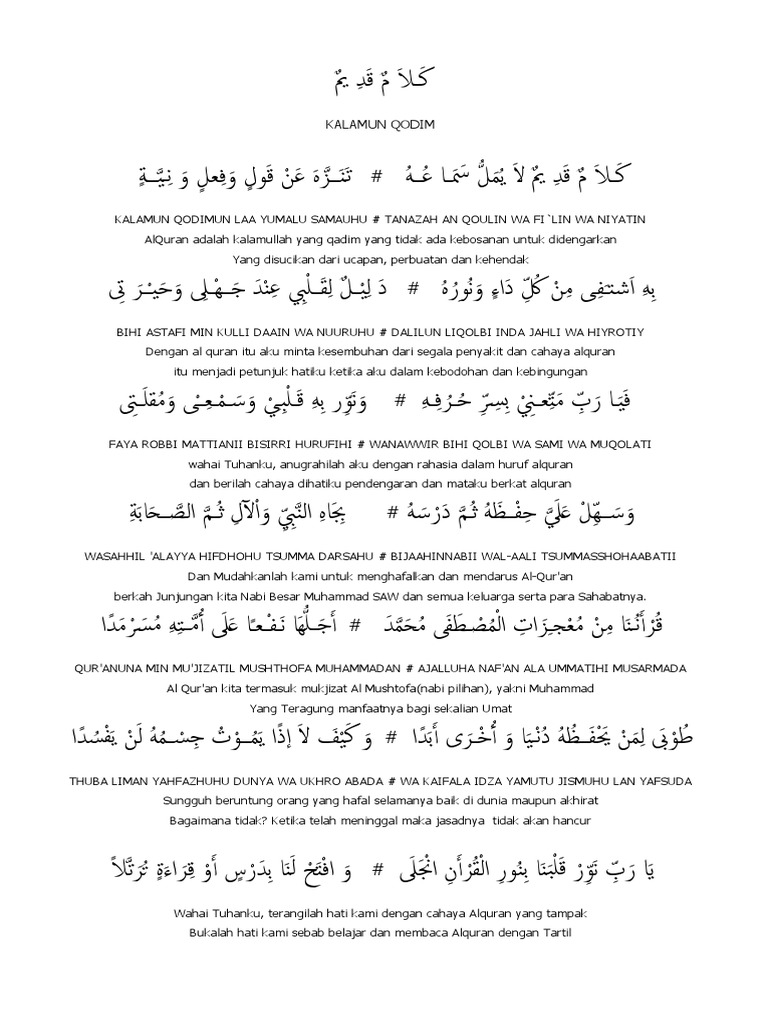 كَلاَ مٌ قَدِ يمٌ
KALAMUN QODIM
كَلاَ مٌ قَدِ يمٌ لاَ يُمَلُّ سَمَا عُهُ # تَنَزَّهَ عَنْ قَولٍ وَفِعلٍ وَ نِيَّةٍ
KALAMUN QODIMUN LAA YUMALU SAMAUHU # TANAZAH AN QOULIN WA FI `LIN WA NIYATIN
AlQuran adalah kalamullah yang qadim yang tidak ada kebosanan untuk didengarkan
Yang disucikan dari ucapan, perbuatan dan kehendak
بِهِ اَشتفِى مِنْ كُلِّ دَاءٍ وَنُورُهُ # دَ لِيْلٌ لِقَلْبِي عِنْدَ جَهْلِى وَحَيْرَ تِى
BIHI ASTAFI MIN KULLI DAAIN WA NUURUHU # DALILUN LIQOLBI INDA JAHLI WA HIYROTIY
Dengan al quran itu aku minta kesembuhan dari segala penyakit dan cahaya alquran
itu menjadi petunjuk hatiku ketika aku dalam kebodohan dan kebingungan
فَيَا رَبِّ مَتِّعنِيْ بِسِرِّ حُرُفِهِ # وَنَوِّر بِهِ قَلْبِيْ وَسَمْعِى وَمُقلَتِى
FAYA ROBBI MATTIANII BISIRRI HURUFIHI # WANAWWIR BIHI QOLBI WA SAMI WA MUQOLATI
wahai Tuhanku, anugrahilah aku dengan rahasia dalam huruf alquran
dan berilah cahaya dihatiku pendengaran dan mataku berkat alquran
وَسَهِّلْ عَلَيَّ حِفْظَهُ ثُمَّ دَرْسَهُ # بِجَاهِ النَّبِيِّ وَاْلآلِ ثُمَّ الصَّحَابَةِ
WASAHHIL 'ALAYYA HIFDHOHU TSUMMA DARSAHU # BIJAAHINNABII WAL-AALI TSUMMASSHOHAABATII
Dan Mudahkanlah kami untuk menghafalkan dan mendarus Al-Qur'an
berkah Junjungan kita Nabi Besar Muhammad SAW dan semua keluarga serta para Sahabatnya.
قُرْأَنُنَا مِنْ مُعْجِزَاتِ الْمُصْطَفَى مُحَمَّدَ # أَجَلُّهَا نَفْعًا عَلَى أُمَّتِهِ مُسَرْمَدًا
QUR'ANUNA MIN MU'JIZATIL MUSHTHOFA MUHAMMADAN # AJALLUHA NAF'AN ALA UMMATIHI MUSARMADA
Al Qur'an kita termasuk mukjizat Al Mushtofa(nabi pilihan), yakni Muhammad
Yang Teragung manfaatnya bagi sekalian Umat
طُوْبَى لِمَنْ يَحْفَظُهُ دُنْيَا وَ أُخْرَى أَبَدًا # وَ كَيْفَ لاَ إذًا يَمُوْتُ جِسْمُهُ لَنْ يَفْسُدًا
THUBA LIMAN YAHFAZHUHU DUNYA WA UKHRO ABADA # WA KAIFALA IDZA YAMUTU JISMUHU LAN YAFSUDA
Sungguh beruntung orang yang hafal selamanya baik di dunia maupun akhirat
Bagaimana tidak? Ketika telah meninggal maka jasadnya tidak akan hancur
يَا رَبِّ نَوِّرْ قَلْبَنَا بِنُورِ الْقُرْأَنِ انْجَلَى # وَ افْتَحْ لَنَا بِدَرْسٍ أَوْ قِرَاءَةٍ تُرَتَّلاً
Wahai Tuhanku, terangilah hati kami dengan cahaya Alquran yang tampak
Bukalah hati kami sebab belajar dan membaca Alquran dengan Tartil